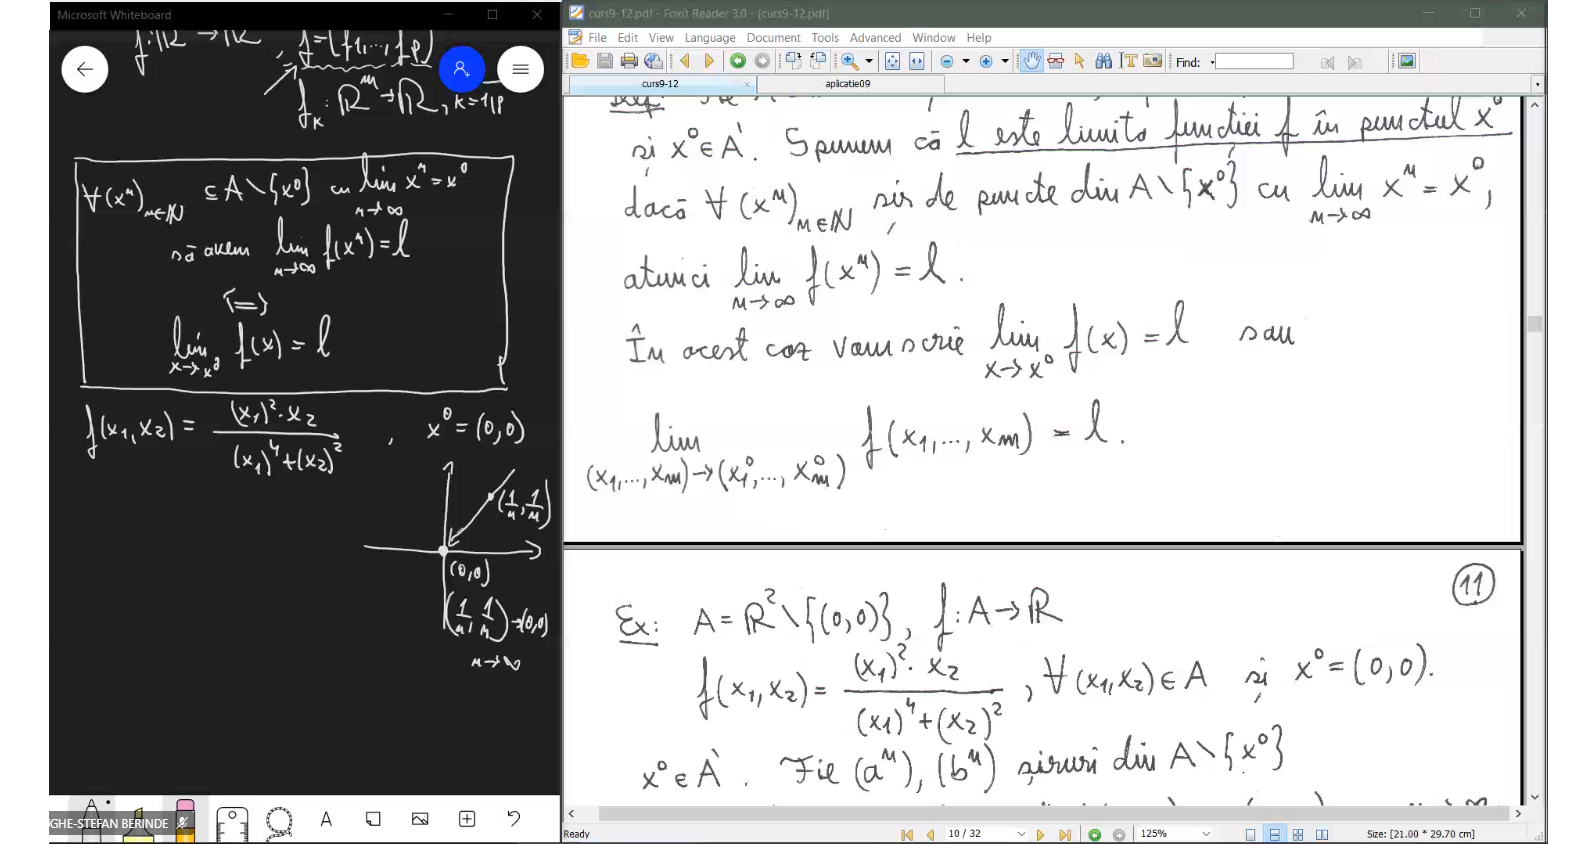 Microsoft Whiteboard
f: ℝ → ℝ
f = (f₁,..., fₚ)
fₖ : ℝᵐ → ℝ, k = 1,p
∀ (xⁿ)ₙ∈ℕ ⊆ A \ {x⁰} cu lim xⁿ = x⁰
n→∞
să avem lim f(xⁿ) = l
n→∞
⇐⇒
lim f(x) = l
x→x⁰
f(x₁, x₂) = (x₁)²·x₂ / (x₁)⁴+(x₂)² , x⁰ = (0,0)
(1/n, 1/n)
(0,0)
(1/n, 1/n) → (0,0)
n→∞
GHE-STEFAN BERINDE
A
curs9-12.pdf - Foxit Reader 3.0 - [curs9-12.pdf]
File Edit View Language Document Tools Advanced Window Help
Find:
curs9-12 aplicatie09
și x⁰ ∈ A'. Spunem că l este limita funcției f în punctul x⁰
dacă ∀ (xⁿ)ₙ∈ℕ șir de puncte din A \ {x⁰} cu lim xⁿ = x⁰,
n→∞
atunci lim f(xⁿ) = l.
n→∞
În acest caz vom scrie lim f(x) = l sau
x→x⁰
lim f(x₁,..., xₘ) = l.
(x₁,..., xₘ)→(x₁⁰,..., xₘ⁰)
11
Ex: A = ℝ² \ {(0,0)}, f: A → ℝ
f(x₁, x₂) = (x₁)²·x₂ / (x₁)⁴+(x₂)² , ∀ (x₁,x₂) ∈ A și x⁰ = (0,0).
x⁰ ∈ A'. Fie (aⁿ), (bⁿ) șiruri din A \ {x⁰}
Ready 10 / 32 125% Size: [21.00 * 29.70 cm]